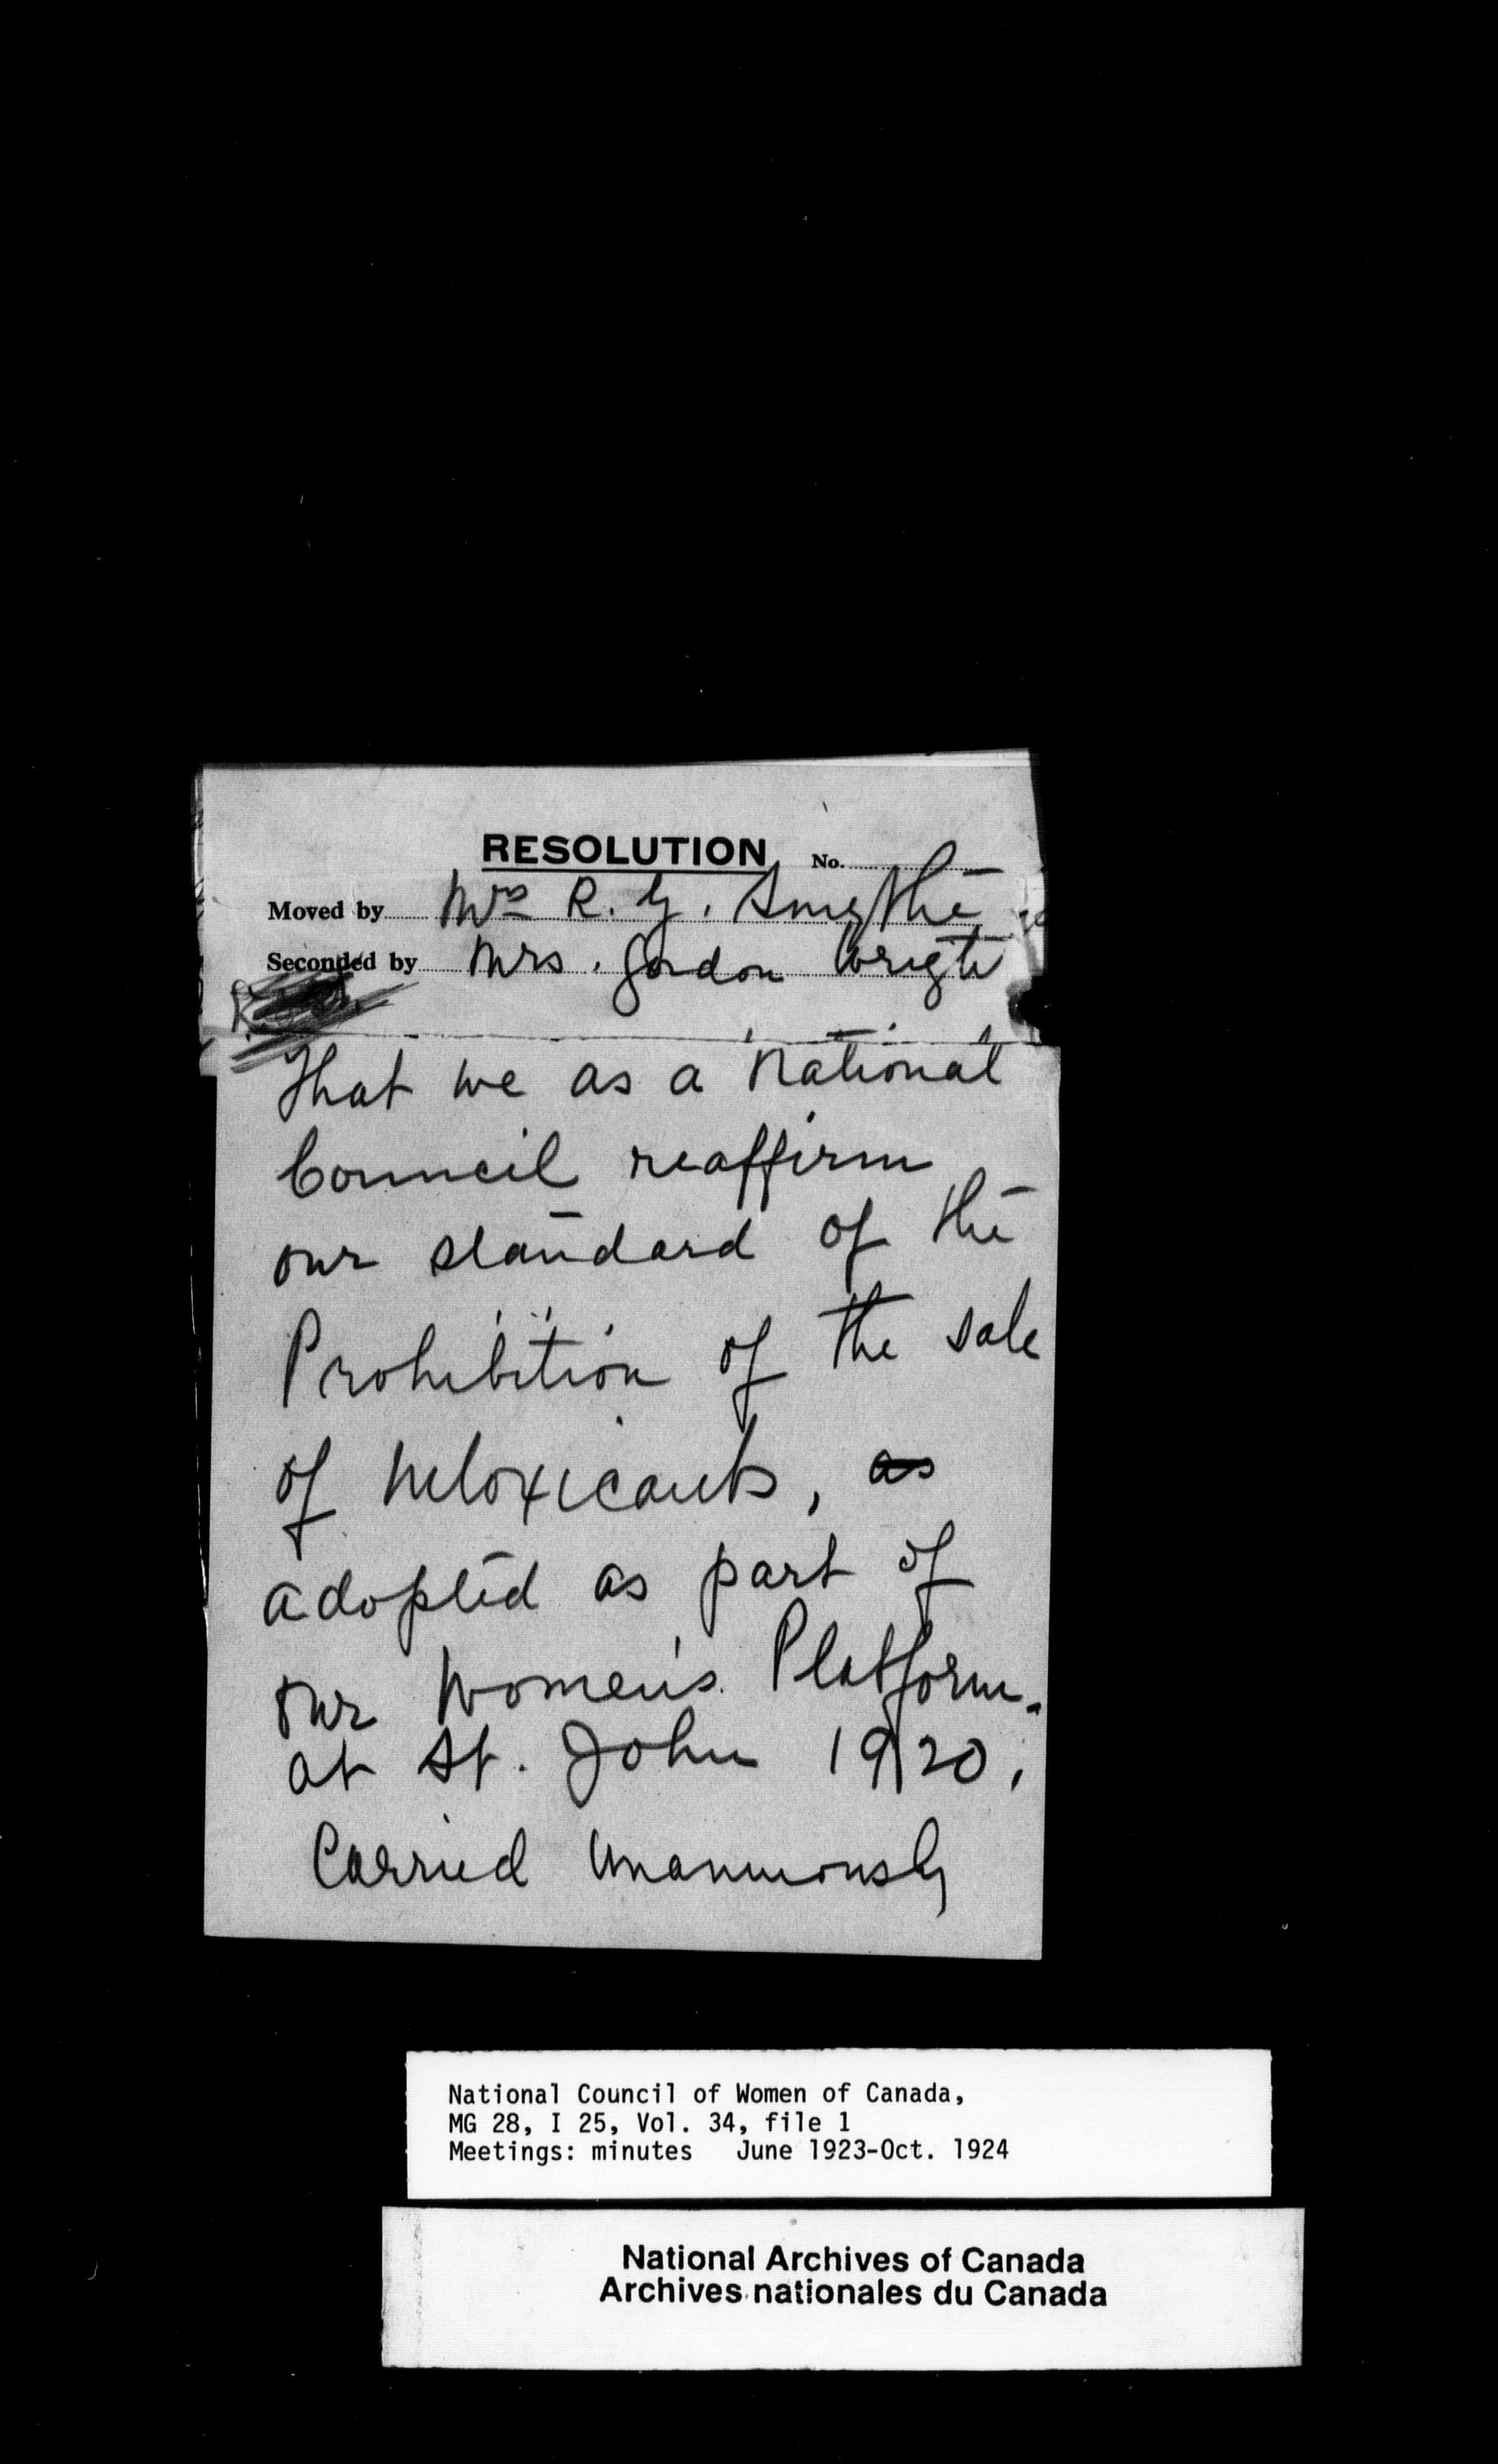 RESOLUTION No.
Moved by Mrs R. G. Smythe
Seconded by Mrs. Gordon Wright
That we as a National
Council reaffirm
our standard of the
Prohibition of the sale
of Intoxicants, as
adopted as part of
our Women's Platform.
at St. John 1920.
Carried Unanimously
National Council of Women of Canada,
MG 28, I 25, Vol. 34, file 1
Meetings: minutes June 1923-Oct. 1924
National Archives of Canada
Archives nationales du Canada